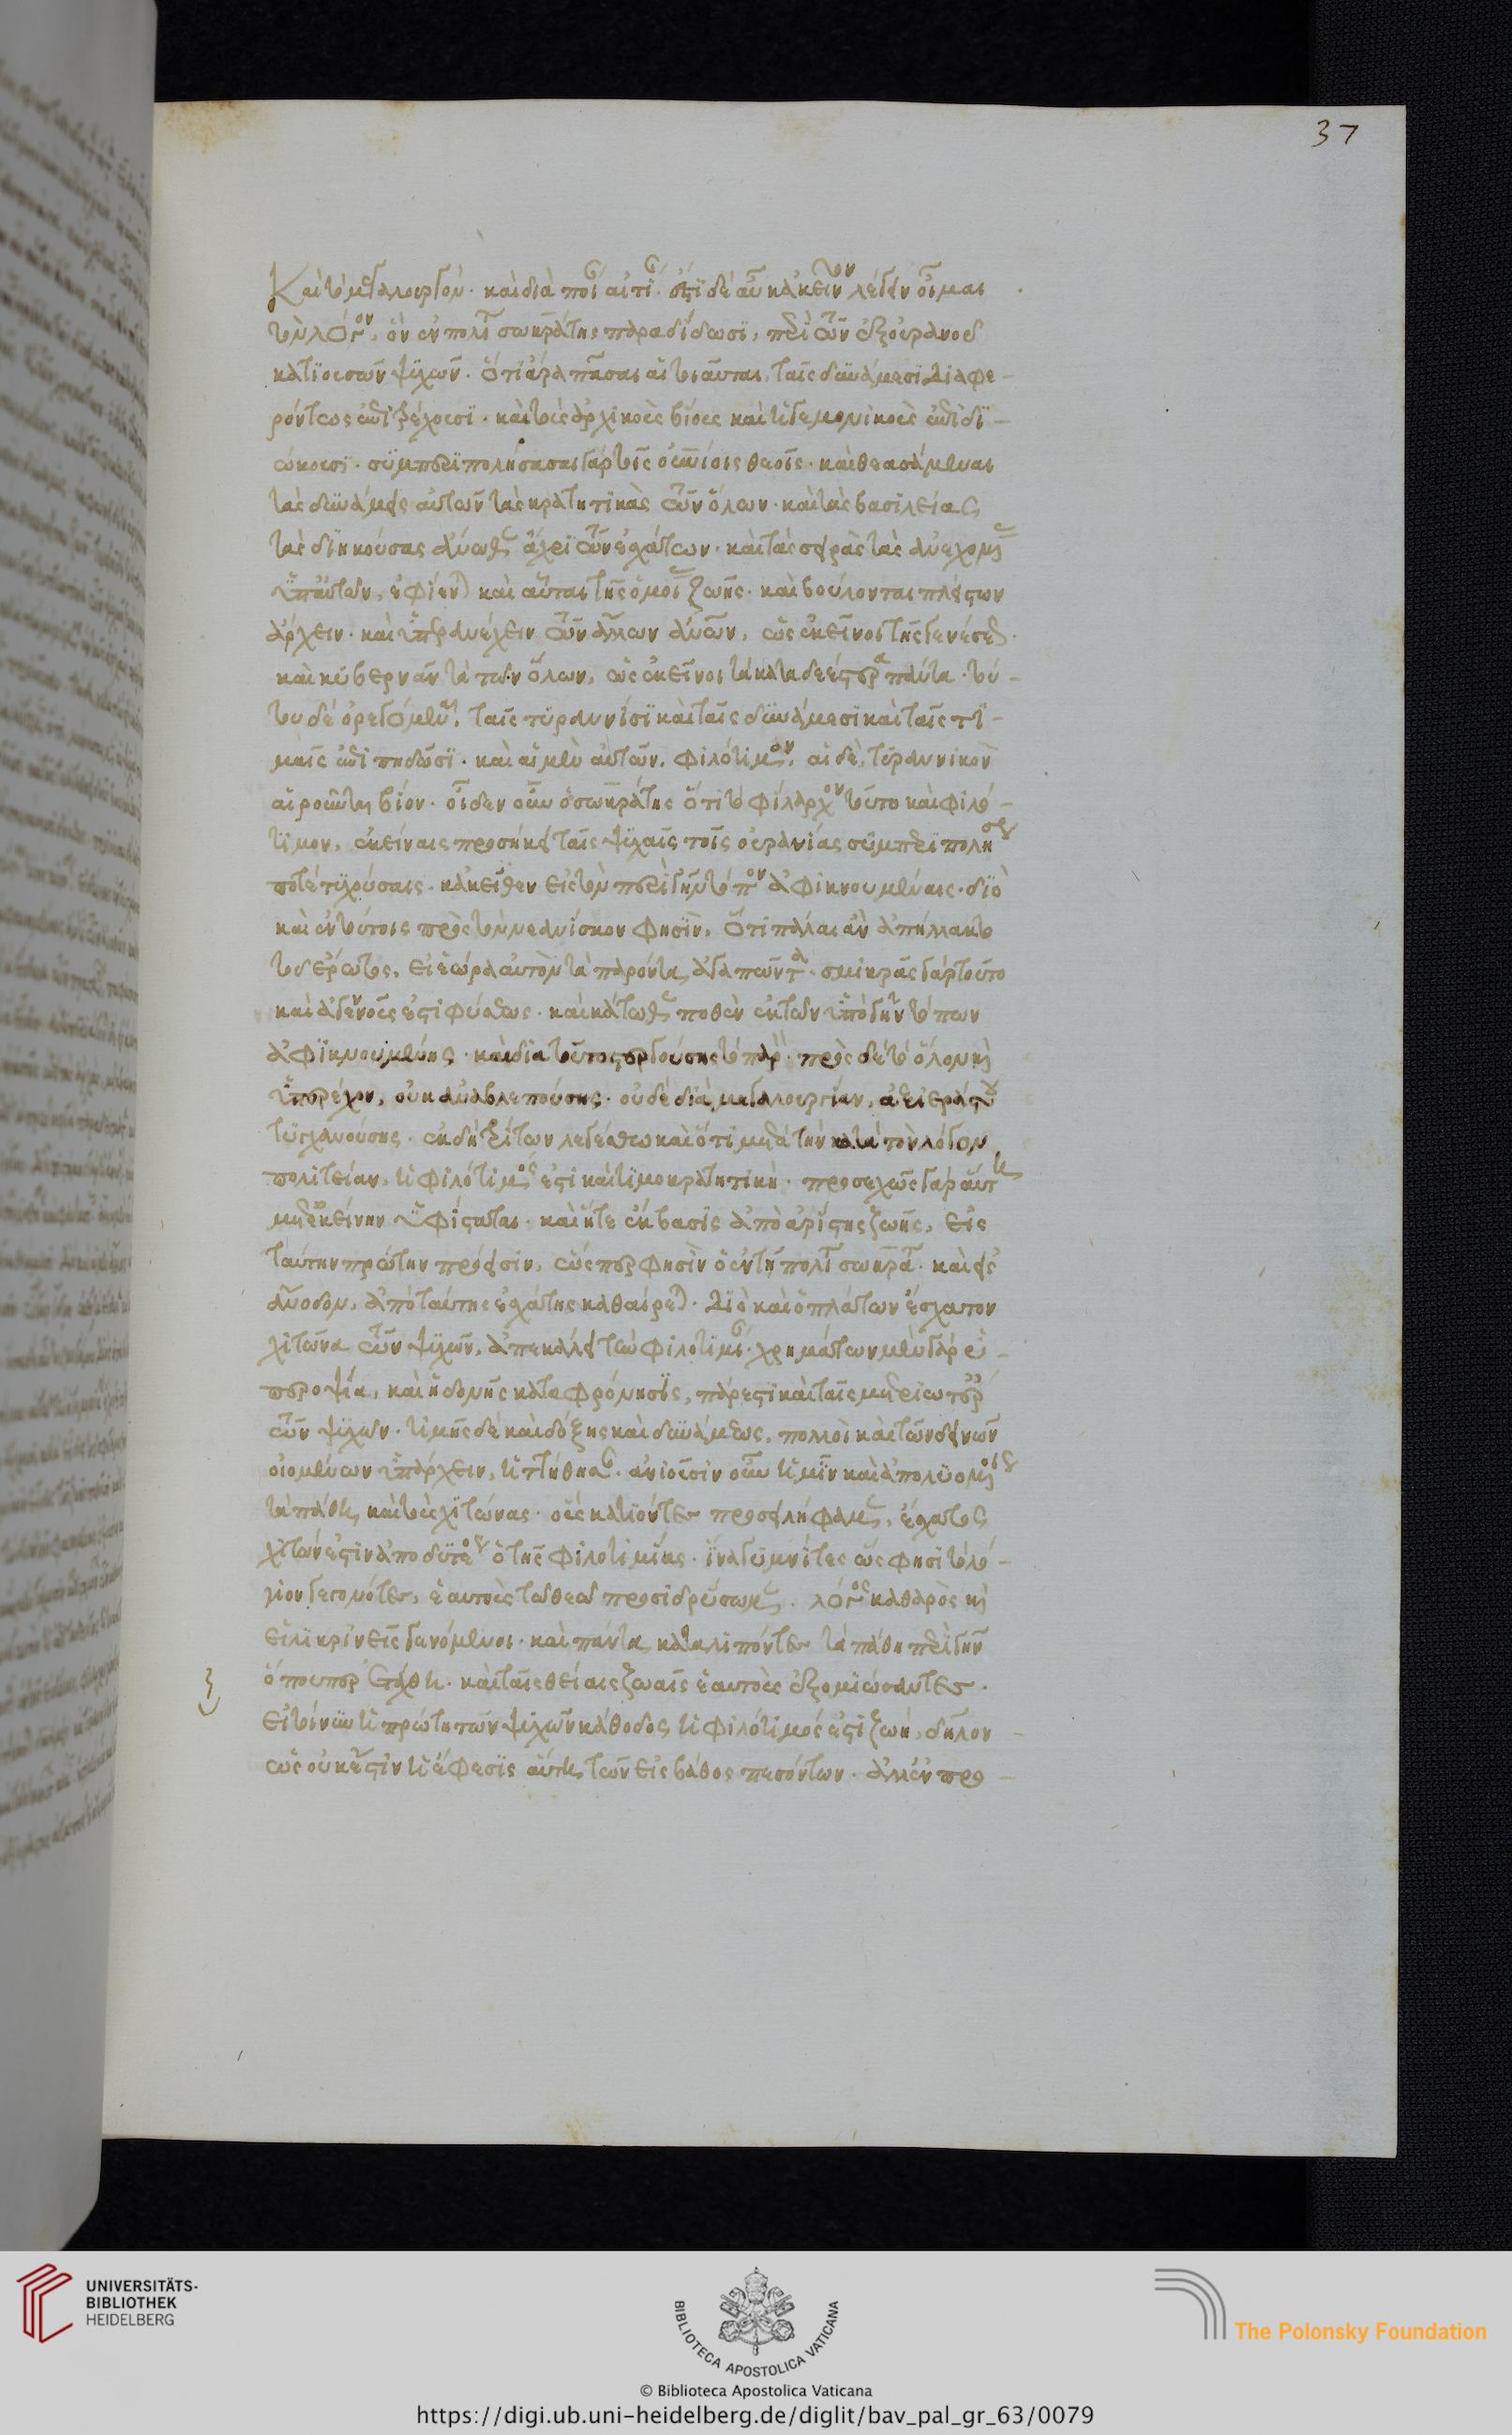 37
Καὶ τὸ μεγαλουργὸν. καὶ διὰ ποί αἰτί. ἔτι δὲ αὖ κἀκεῖνον λέγειν οἶμαι
τὸν λόγον, ὃν ἐν πολιτ σωκράτης παραδίδωσι, περὶ τῶν ἐξ οὐρανοῦ
κατιουσῶν ψυχῶν. ὅτι ἄρα πᾶσαι αἱ τοιαῦται, ταῖς δυνάμεσι διαφε-
ρόντως ἐπιτρέχουσι. καὶ τοὺς ἀρχικοὺς βίους καὶ ἡγεμονικοὺς ἐπιδι-
ώκουσι. συμπεριπολήσασαι γὰρ τοῖς οὐρανίοις θεοῖς. καὶ θεασάμεναι
τὰς δυνάμεις αὐτῶν τὰς κρατητικὰς τῶν ὅλων. καὶ τὰς βασιλείας
τὰς διηκούσας ἄνωθεν ἄχρι τῶν ἐσχάτων. καὶ τὰς σειρὰς τὰς ἀνεχομένας
ὑπ' αὐτῶν, ἐφίενται καὶ αὗται τῆς ὁμοίας ζωῆς. καὶ βούλονται πλείστων
ἄρχειν. καὶ ὑπερανέχειν τῶν ἄλλων αὐτῶν, ὡς ἐκεῖνοι τῆς γενέσεως.
καὶ κυβερνᾶν τὰ τῶν ὅλων, ὡς ἐκεῖνοι τὰ καταδεέστερα πάντα. τού-
του δὲ ὀρεγόμεναι, ταῖς τυραννίσι καὶ ταῖς δυνάμεσι καὶ ταῖς τι-
μαῖς ἐπιπηδῶσι. καὶ αἱ μὲν αὐτῶν, φιλότιμον, αἱ δὲ, τυραννικὸν
αἱροῦνται βίον. οἶδεν οὖν ὁ σωκράτης ὅτι τὸ φίλαρχον τοῦτο καὶ φιλό-
τιμον, ἐκείναις προσήκει ταῖς ψυχαῖς τοῖς οὐρανίας συμπεριπολήσεως
ποτὲ τυχούσαις. κἀκεῖθεν εἰς τὸν περὶ γῆν τόπον ἀφικνουμέναις. διὸ
καὶ ἐν τούτοις πρὸς τὸν νεανίσκον φησὶν, ὅτι πάλαι ἂν ἀπήλλακτο
τοῦ ἔρωτος, εἰ ἑώρα αὐτὸν τὰ παρόντα ἀγαπῶντα. σμικρᾶς γὰρ τοῦτο
καὶ ἀγεννοῦς ἐστι φύσεως. καὶ κάτωθέν ποθεν ἐκ τῶν ὑπὸ γῆν τόπων
ἀφικνουμένης. καὶ διὰ τοῦτο στεργούσης τὸ παρὸν. πρὸς δὲ τὸ ὅλον καὶ
ὑπερέχον, οὐκ ἀναβλεπούσης. οὐδὲ διὰ μεγαλουργίαν, ἀξιεράστου
τυγχανούσης. ἐκ δὴ τούτων λεγέσθω καὶ ὅτι μετὰ τὴν κατὰ τὸν λόγον
πολιτείαν, ἡ φιλότιμός ἐστι καὶ τιμοκρατητική. προσεχῶς γὰρ αὕτη
μετ' ἐκείνην ὑφίσταται. καὶ ἥτε ἔκβασις ἀπὸ ἀρίστης ζωῆς, εἰς
ταύτην πρώτην πρόεισιν, ὥσπερ φησὶν ὁ ἐν τῇ πολιτ σωκράτ. καὶ εἰς
ἄνοδον, ἀπὸ ταύτης ἐσχάτης καθαίρεται. Διὸ καὶ ὁ πλάτων ἔσχατον
χιτῶνα τῶν ψυχῶν, ἀπεκάλει τὴν φιλοτιμίαν. χρημάτων μὲν γὰρ ὑ-
περοψία, καὶ ἡδονῆς καταφρόνησις, πάρεστι καὶ ταῖς μετριωτέραις
τῶν ψυχῶν. τιμῆς δὲ καὶ δόξης καὶ δυνάμεως, πολλοὶ καὶ τῶν δεινῶν
οἰομένων ὑπάρχειν, ἡττήθησαν. ἀνιοῦσιν οὖν ἡμῖν καὶ ἀπολυομένοις
τὰ πάθη καὶ τοὺς χιτῶνας. οὓς κατιόντες προσειλήφαμεν, ἔσχατος
χιτών ἐστιν ἀποδυτέος ὁ τῆς φιλοτιμίας. ἵνα γυμνῆτες ὥς φησι τὸ λό-
γιον γεγονότες, ἑαυτοὺς τῷ θεῷ προσιδρύσωμεν. λόγος καθαρὸς καὶ
εἰλικρινεῖς γενόμενοι. καὶ πάντα καταλιπόντες τὰ πάθη περὶ γῆν
ὅπουπερ ἐτέχθη. καὶ ταῖς θείαις ζωαῖς ἑαυτοὺς ἐξομοιώσαντες.
εἰ τοίνυν ἡ πρώτη τῶν ψυχῶν κάθοδος ἡ φιλότιμός ἐστι ζωὴ, δῆλον
ὡς οὐκ ἔστιν ἡ ἔφεσις αὕτη τῶν εἰς βάθος πεσόντων. ἀλλ' ἐν προ-
UNIVERSITÄTS-
BIBLIOTHEK
HEIDELBERG
BIBLIOTECA APOSTOLICA VATICANA
The Polonsky Foundation
© Biblioteca Apostolica Vaticana
https://digi.ub.uni-heidelberg.de/diglit/bav_pal_gr_63/0079